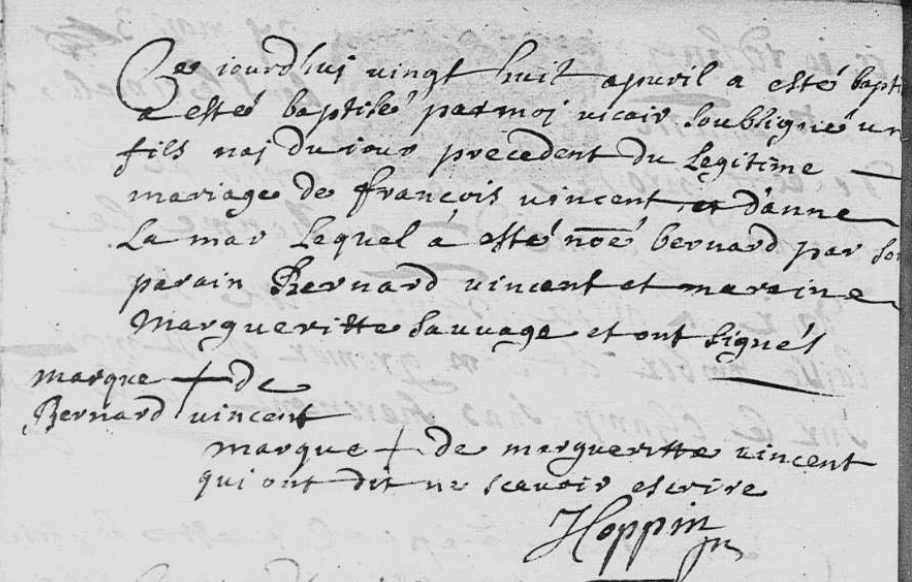 Ce jourdhuj vingt huit apvril a esté bapti
a esté baptisé par moj vicair soubsigné un
fils naj du jour precedent du legitime
mariage de françois vincent et d'anne
La mar lequel à esté nõé bernard par so
parain Bernard vincent et maraine
Margueritte sauvage et ont signés
marque + de
Bernard vincent
marque + de margueritte vincent
qui ont dit ne scavoir escrire
Hoppin